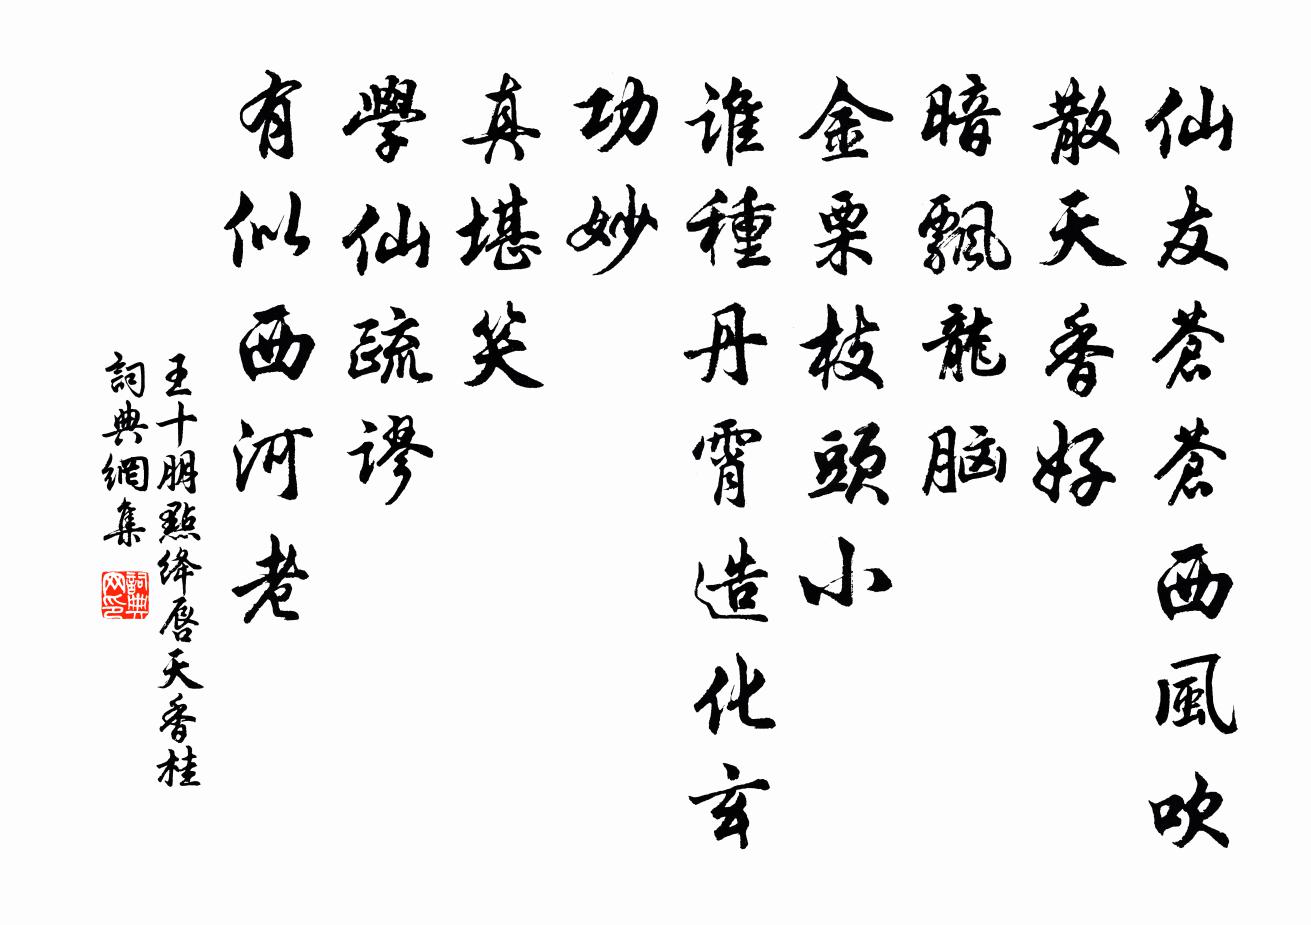 仙友蒼蒼西風吹
散天香好
暗飄龍脑
金粟枝頭小
誰種丹霄造化玄
功妙
真堪笑
學仙疏謬
有似西河老
王十朋點绛唇天香桂
詞典網集
詞典网印